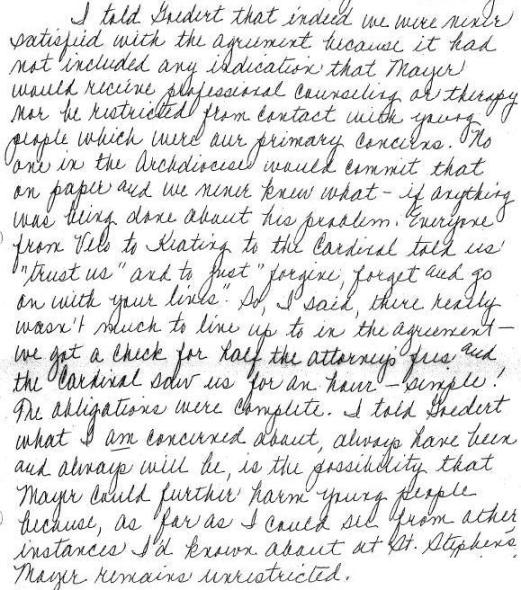 I told Goedert that indeed we were never
satisfied with the agreement because it had
not included any indication that Mayer
would receive professional counseling or therapy
nor be restricted from contact with young
people which were our primary concerns. No
one in the Archdiocese would commit that
on paper and we never knew what - if anything
was being done about his problem. Everyone
from Velo to Keating to the Cardinal told us
"trust us" and to just "forgive, forget and go
on with your lives". So, I said, there really
wasn't much to live up to in the agreement -
we got a check for half the attorney's fees and
the Cardinal saw us for an hour - simple!
The obligations were complete. I told Goedert
what I am concerned about, always have been
and always will be, is the possibility that
Mayer could further harm young people
because, as far as I could see from other
instances I'd known about at St. Stephen's
Mayer remains unrestricted.